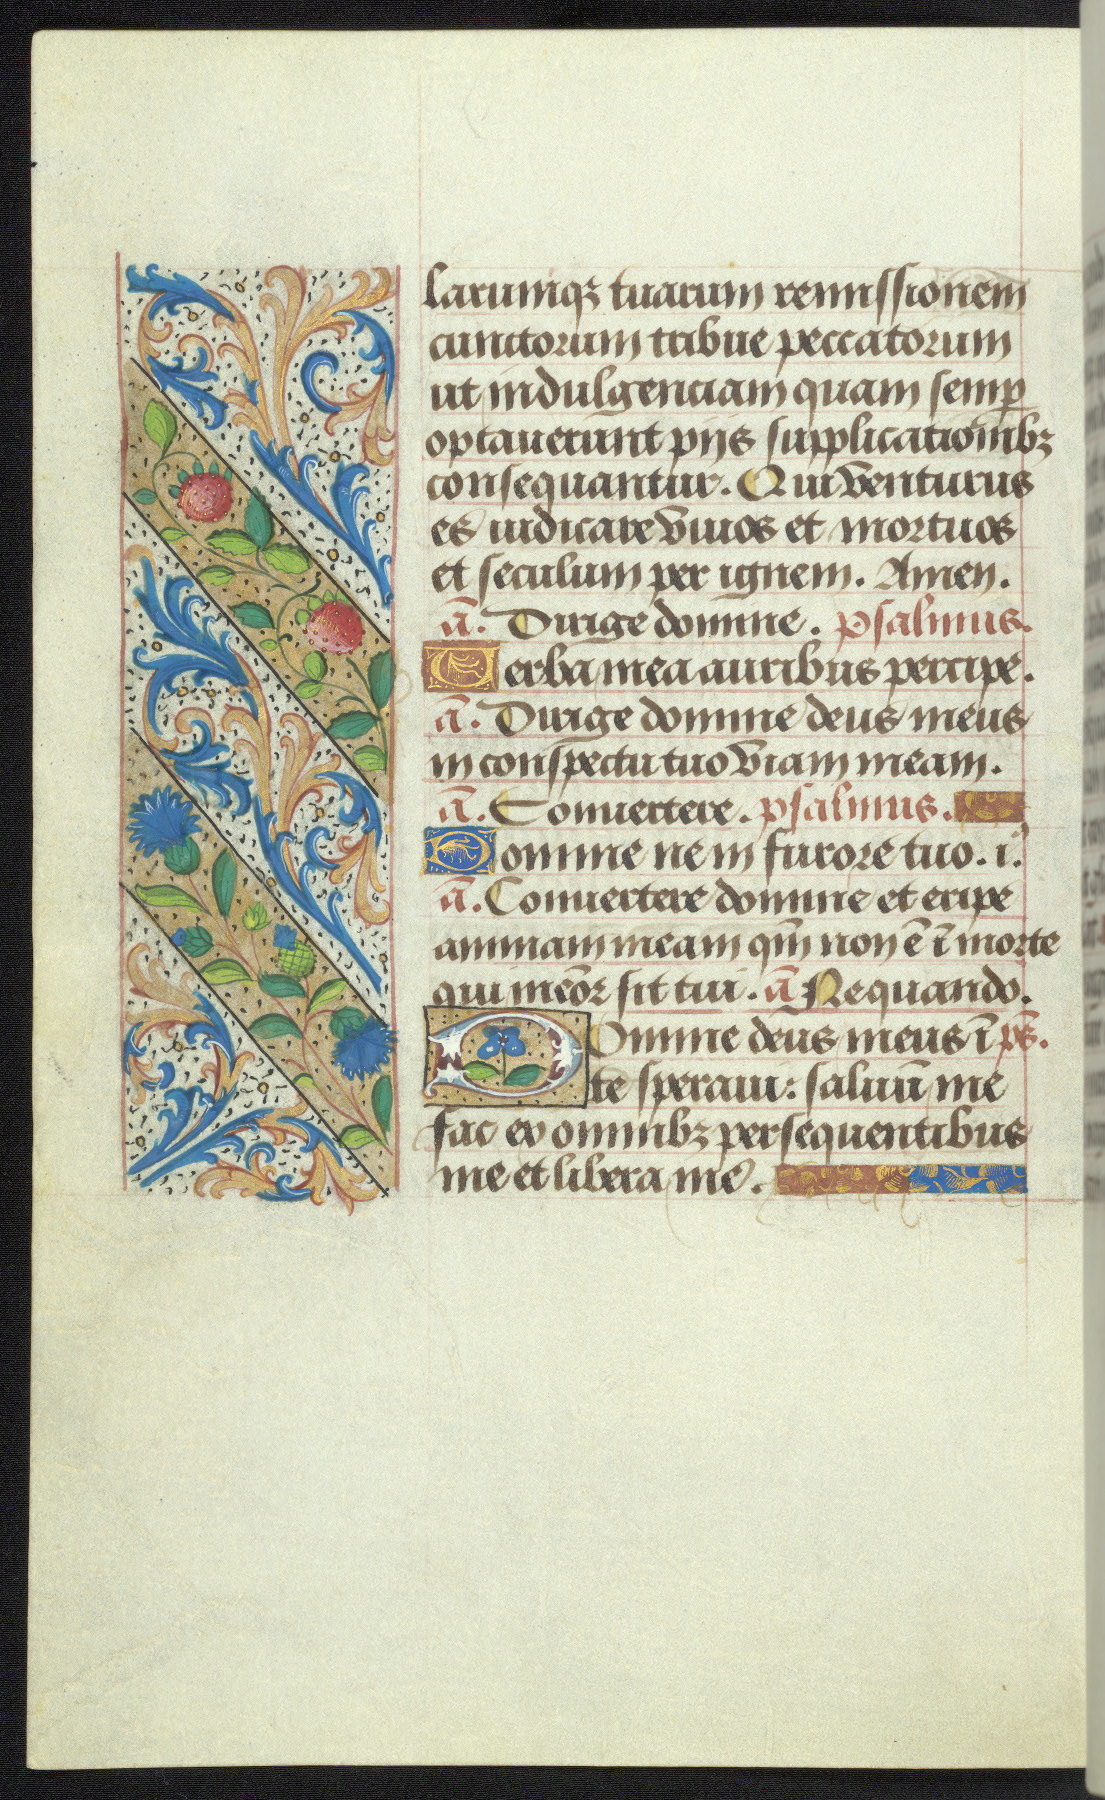 larumqꝫ tuarum remissionem
cunctorum tribue peccatorum
ut indulgenciam quam semꝑ
optauerunt pijs supplicationibꝫ
consequantur. Qui venturus
es iudicare viuos et mortuos
et seculum per ignem. Amen.
añ. Dirige domine. psalmus.
Verba mea auribus percipe.
añ. Dirige domine deus meus
in conspectu tuo viam meam.
añ. Conuertere. psalmus.
Domine ne in furore tuo. i.
añ. Conuertere domine et eripe
animam meam qm̄ non ē ī morte
qui meōr sit tui. añ Nequando.
Domine deus meus ī ps̄.
te speraui: saluū me
fac ex omnibꝫ persequentibus
me et libera me.